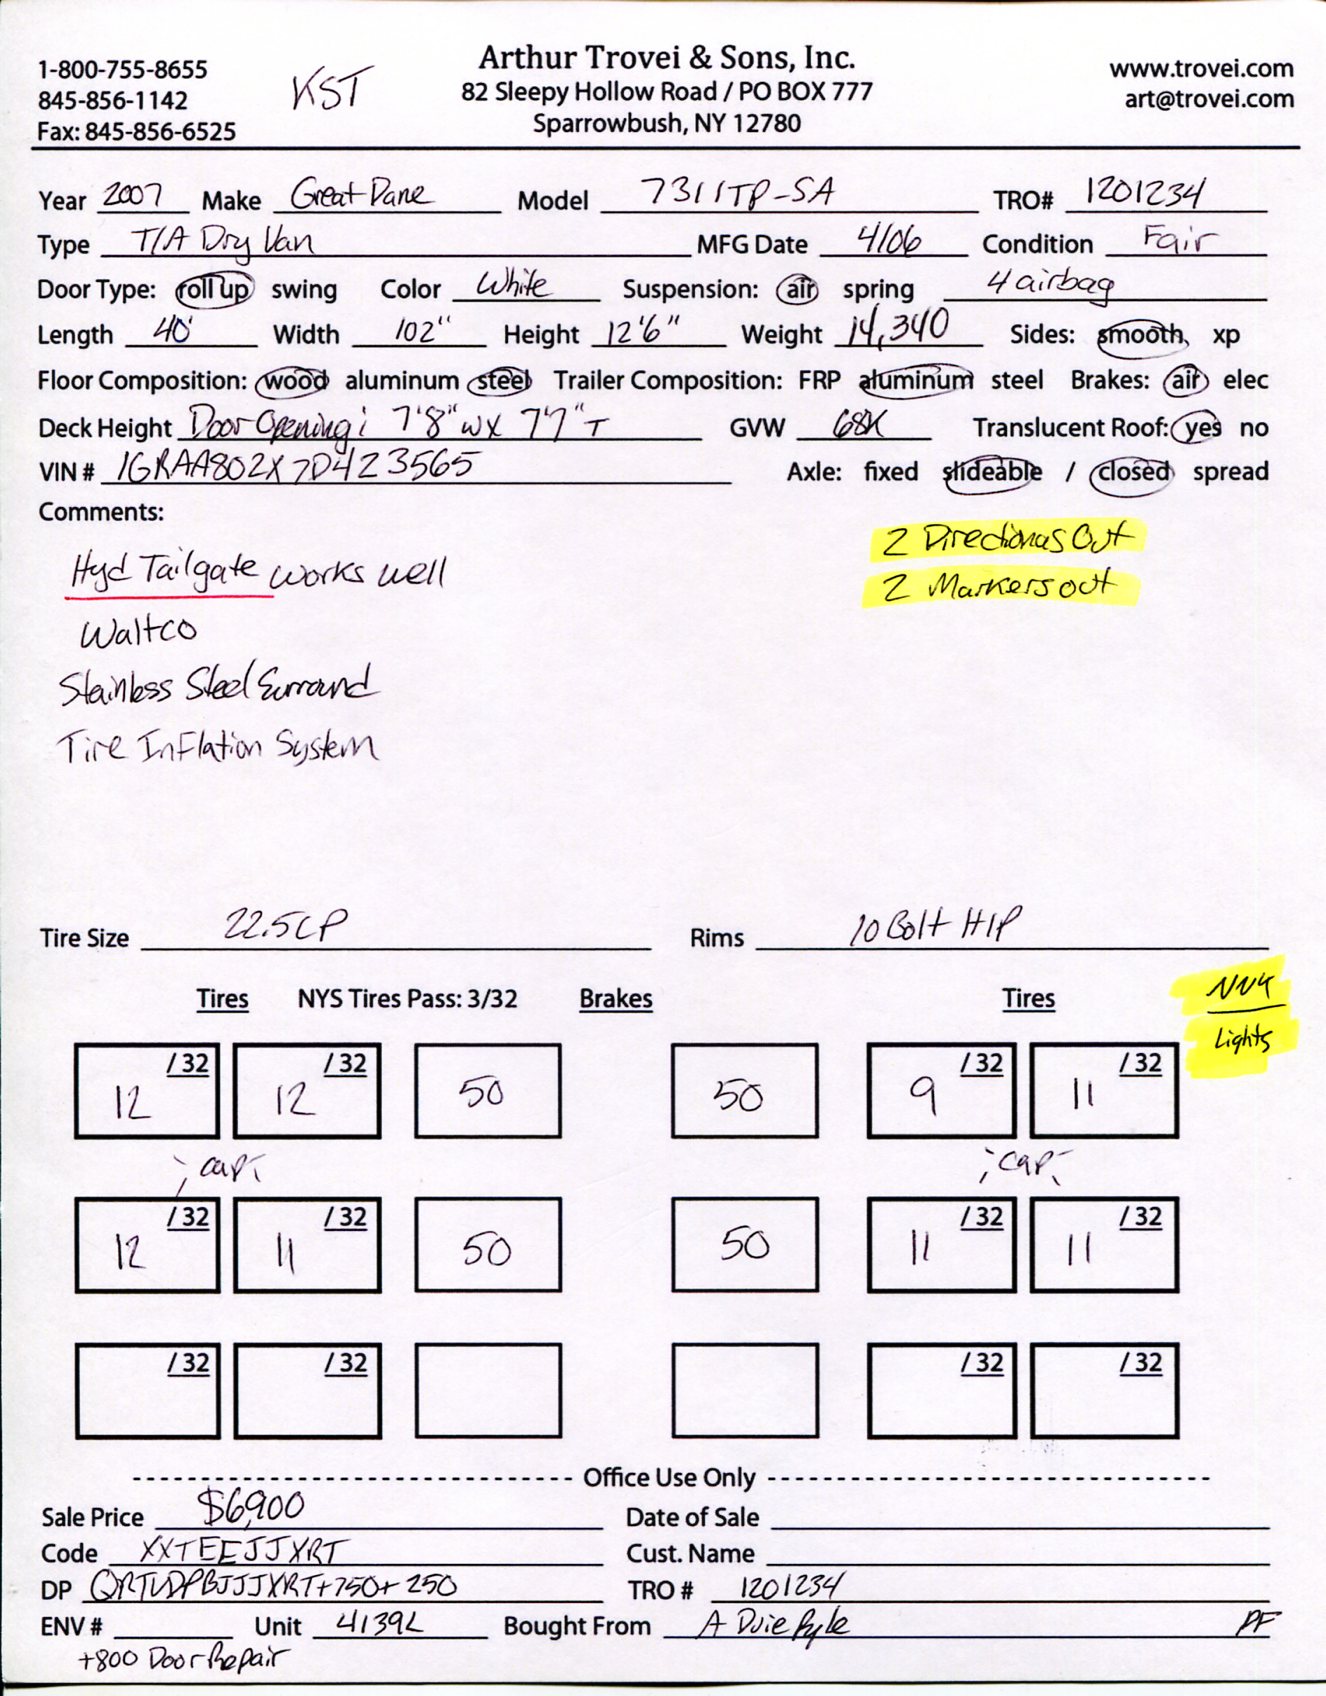 Arthur Trovei & Sons, Inc.
1-800-755-8655 KST 82 Sleepy Hollow Road / PO BOX 777 www.trovei.com
845-856-1142 Sparrowbush, NY 12780 art@trovei.com
Fax: 845-856-6525
Year 2007 Make Great Dane Model 7311TP-SA TRO# 1201234
Type T/A Dry Van MFG Date 4/06 Condition Fair
Door Type: roll up swing Color White Suspension: air spring 4 airbag
Length 40' Width 102" Height 12'6" Weight 14,340 Sides: smooth xp
Floor Composition: wood aluminum steel Trailer Composition: FRP aluminum steel Brakes: air elec
Deck Height Door Opening: 7'8" W X 7'7" T GVW 68K Translucent Roof: yes no
VIN # 1GRAA802X7D423565 Axle: fixed slideable / closed spread
Comments:
2 Directionals Out
Hyd Tailgate works well 2 Markers out
Waltco
Stainless Steel Surround
Tire Inflation System
Tire Size 22.5LP Rims 10 Bolt HP
Tires NYS Tires Pass: 3/32 Brakes Tires
Lights
/32 /32 /32 /32
12 12 50 50 9 11
cap cap
/32 /32 /32 /32
12 11 50 50 11 11
/32 /32 /32 /32
Office Use Only
Sale Price $6,900 Date of Sale
Code XXTEEJJXRT Cust. Name
DP QRTVDPBJJJXRT+750+250 TRO # 1201234
ENV # Unit 4139L Bought From A Duie Pyle PF
+800 Door Repair